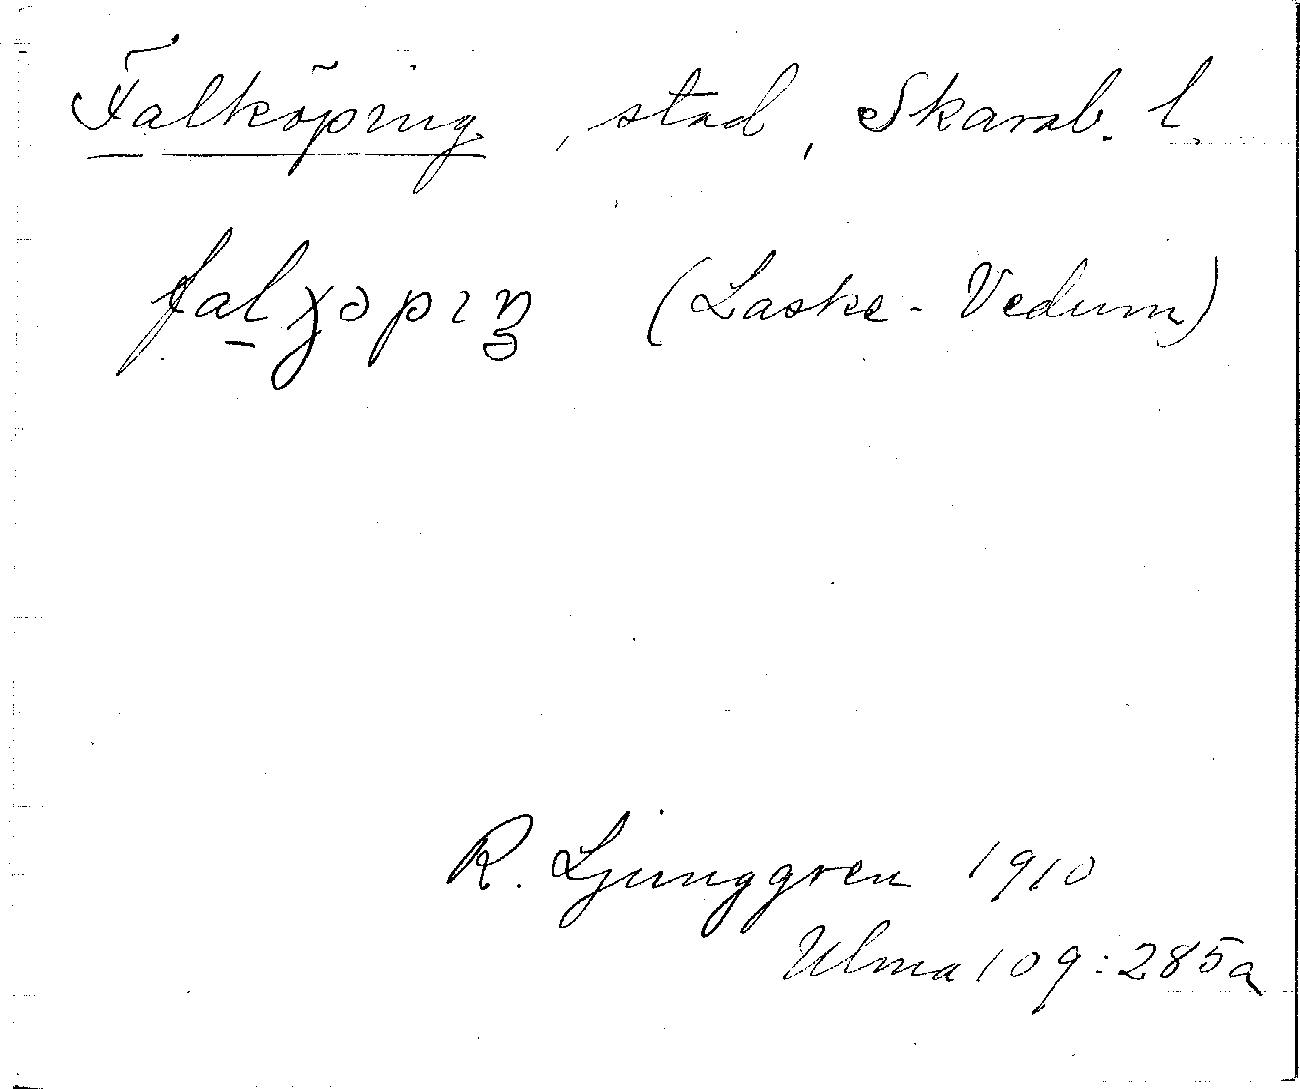 Falköping, stad, Skarab. l.
falɣəpıŋ (Laske-Vedum)
R. Ljunggren 1910
Ulma 109:285a